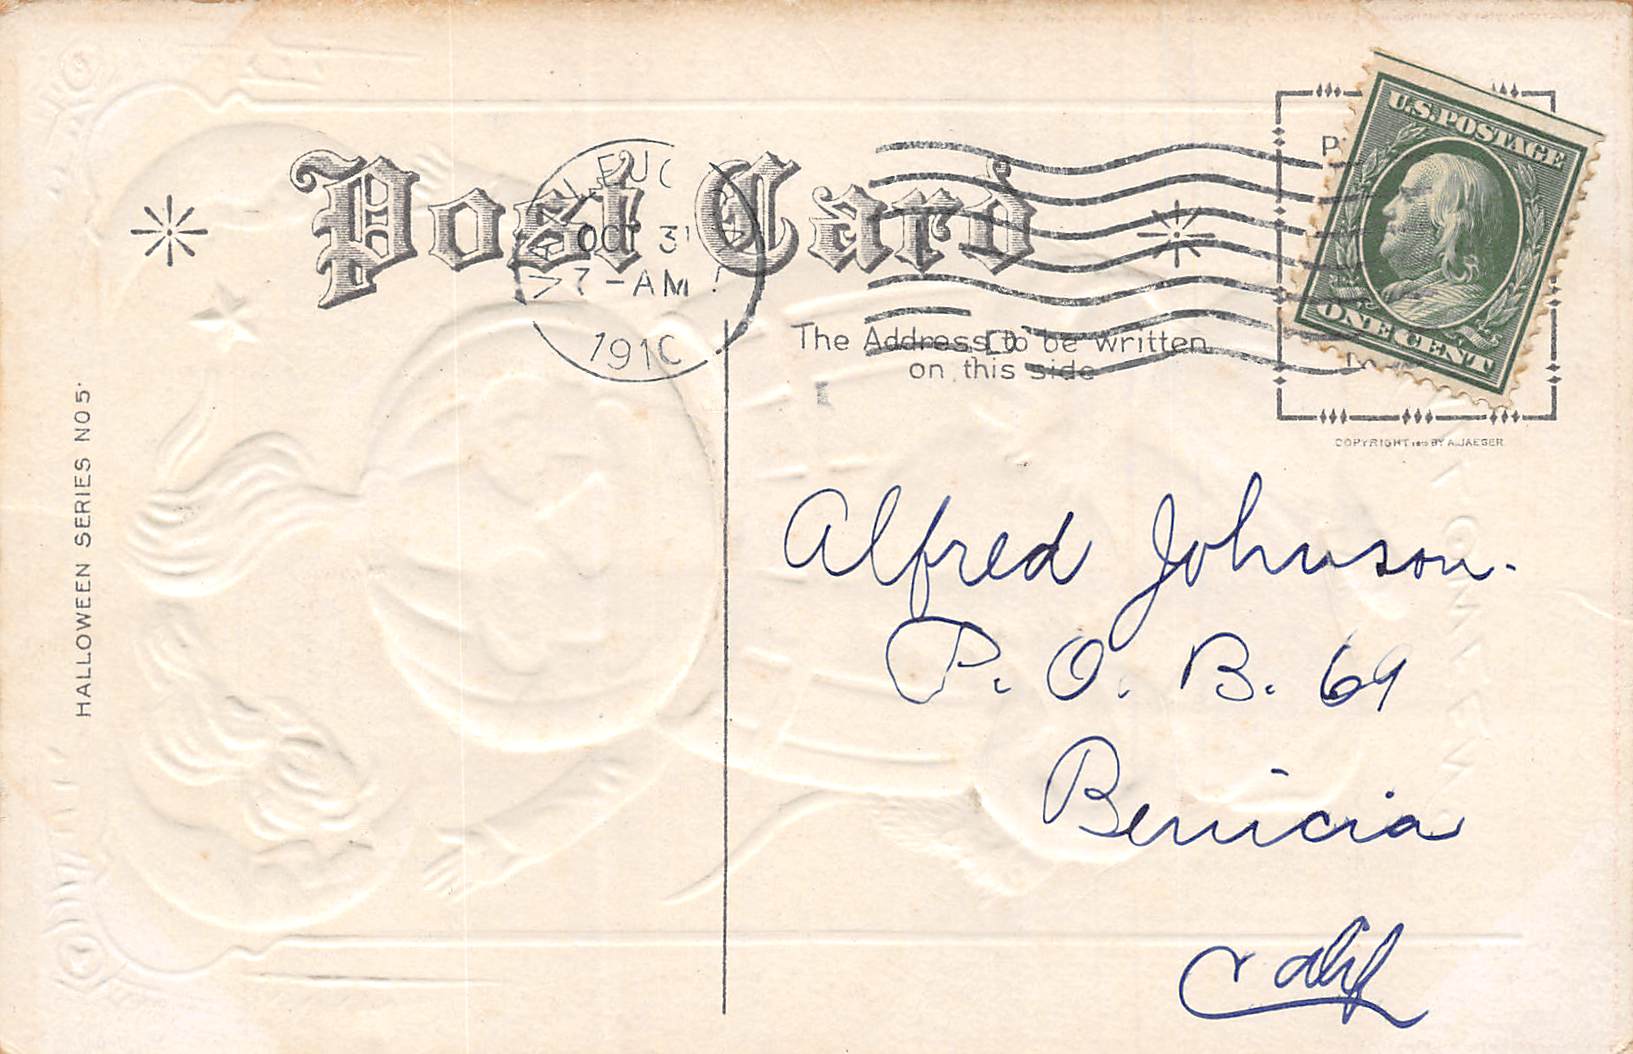 Post Card
OCT 31
7-AM
1910
The Address to be written
on this side
U.S. POSTAGE
ONE CENT
COPYRIGHT BY A. JAEGER
HALLOWEEN SERIES NO 5.
Alfred Johnson.
P. O. B. 69
Benicia
Calif